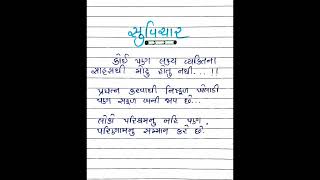 સુવિચાર
કોઈ પણ લક્ષ્ય વ્યક્તિના
સાહસથી મોટું હોતું નથી...!!
પ્રયત્ન કરવાથી નિષ્ફળ
પણ સફળ બની જાય છે...
લોકો પરિશ્રમનું નહિ પણ,
પરિણામનું સન્માન કરે છે.